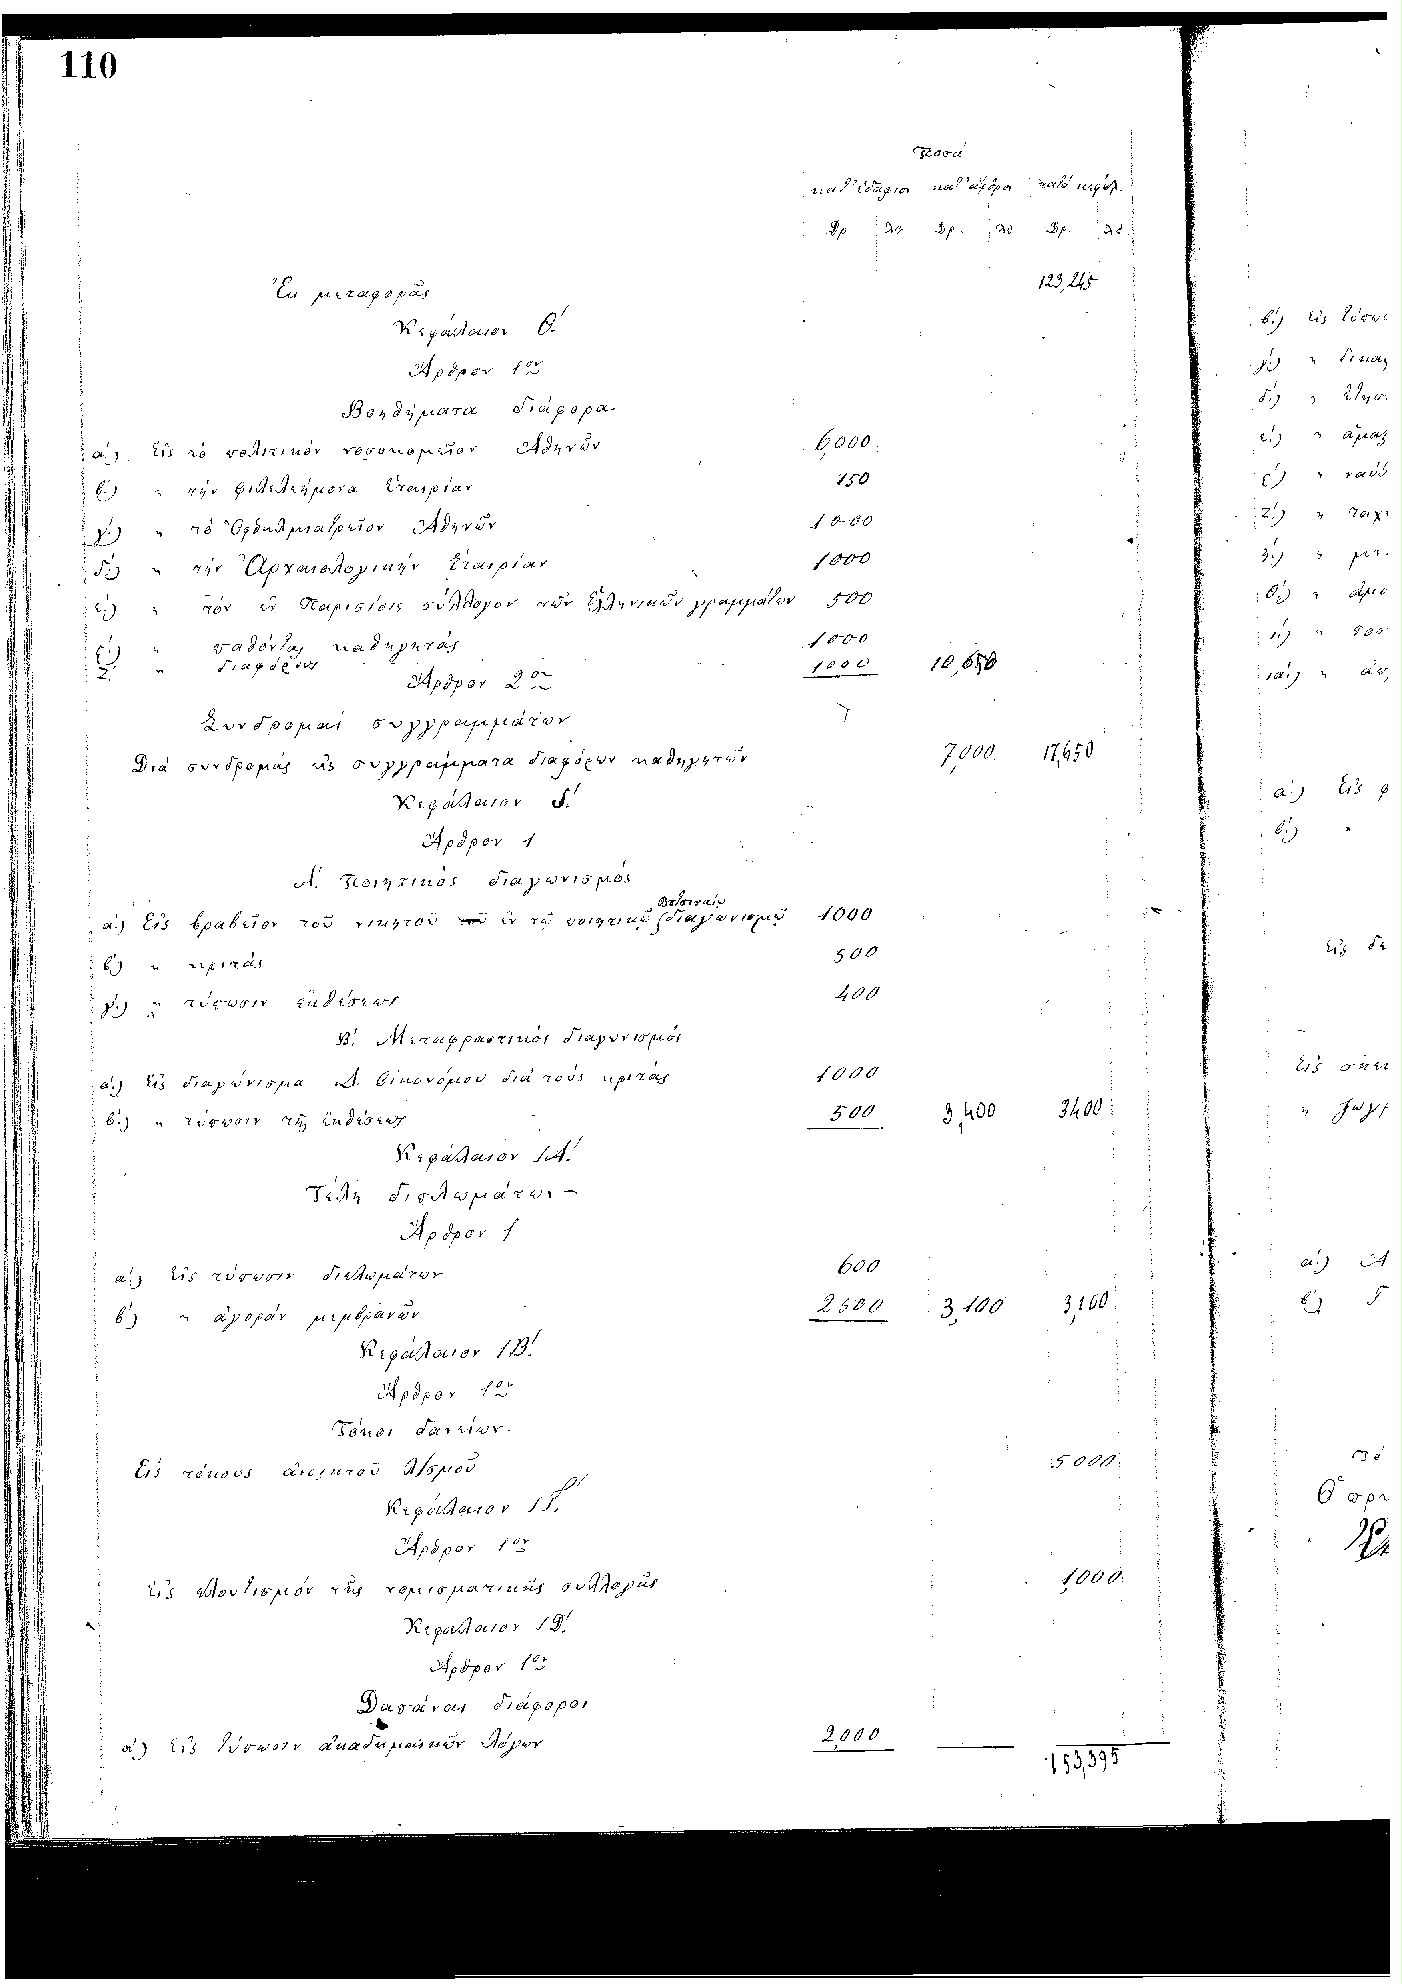 110
Ποσά
καθ' εδάφιον κατ' άρθρον κατά κεφάλ.
Δρ λ Δρ. λ Δρ. λ
Ἐκ μεταφορᾶς 123,245
Κεφάλαιον Θ'.
Ἄρθρον 1ον
Βοηθήματα διάφορα.
ά.) Εἰς τὸ πολιτικὸν νοσοκομεῖον Ἀθηνῶν 6,000
β.) " τὴν φιλελεήμονα Ἑταιρίαν 150
γ'.) " τὸ Ὀφθαλμιατρεῖον Ἀθηνῶν 1000
δ.) " τὴν Ἀρχαιολογικὴν Ἑταιρίαν 1000
έ.) " τὸν ἐν Παρισίοις σύλλογον τῶν Ἑλληνικῶν γραμμάτων 500
ϛ'.) " παθόντας καθηγητάς 1000
ζ. " διαφόρους 1000 10,650
Ἄρθρον 2ον
Συνδρομαὶ συγγραμμάτων
Διὰ συνδρομὰς εἰς συγγράμματα διαφόρων καθηγητῶν 7,000. 17,650
Κεφάλαιον Ι'.
Ἄρθρον 1
Α'. Ποιητικὸς διαγωνισμός
ά.) Εἰς βραβεῖον τοῦ νικητοῦ ἐν τῷ ποιητικῷ Βουτσιναίῳ διαγωνισμῷ 1000
β'.) " κριτάς 500
γ'.) " τύπωσιν ἐκθέσεως 400
Β'. Μεταφραστικὸς διαγωνισμός
ά.) Εἰς διαγώνισμα Δ. Οἰκονόμου διὰ τοὺς κριτάς 1000
β'.) " τύπωσιν τῆς ἐκθέσεως 500 3,400 3400
Κεφάλαιον ΙΑ'.
Τέλη διπλωμάτων –
Ἄρθρον 1
ά.) Εἰς τύπωσιν διπλωμάτων 600
β'.) " ἀγορὰν μεμβρανῶν 2500 3,100 3,100
Κεφάλαιον ΙΒ'.
Ἄρθρον 1ον
Τόκοι δανείων.
Εἰς τόκους ἀνοικτοῦ λ/σμοῦ 5000
Κεφάλαιον ΙΓ'.
Ἄρθρον 1ον
Εἰς πλουτισμὸν τῆς νομισματικῆς συλλογῆς 1,000
Κεφάλαιον ΙΔ'.
Ἄρθρον 1ον
Δαπάναι διάφοροι
ά.) Εἰς τύπωσιν ἀκαδημαϊκῶν λόγων 2,000
153,395
β'.) Εἰς
γ'.) "
δ.) "
έ.) "
ϛ'.) "
ζ'.) "
ή.) "
θ'.) "
ί.) "
ιά.) "
ά.) Εἰς
β'.) "
Εἰς
Εἰς
"
ά.)
β'.)